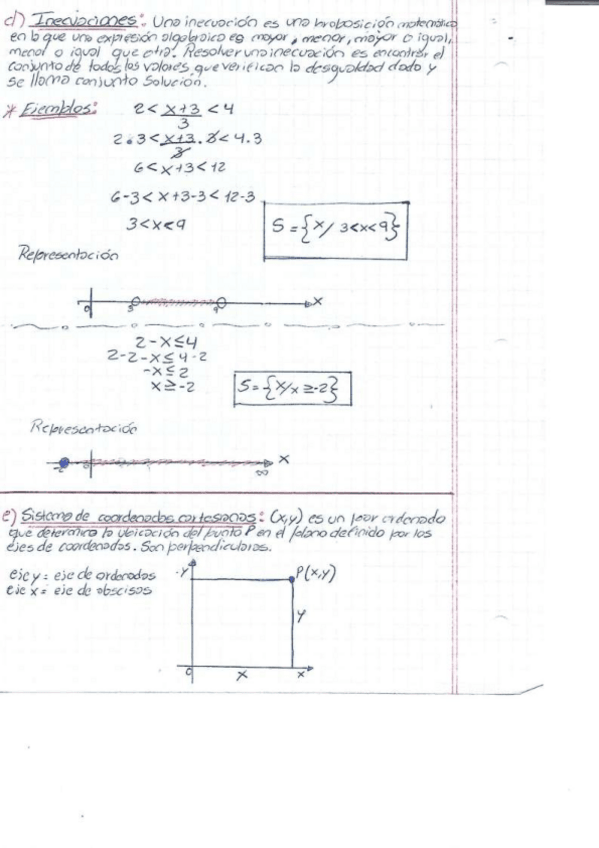 d) Inecuaciones: Una inecuación es una proposición matemática
en la que una expresión algebraica es mayor, menor, mayor o igual,
menor o igual que otra. Resolver una inecuación es encontrar el
conjunto de todos los valores que verifican la desigualdad dada y
se llama conjunto solución.
* Ejemplos: 2 < (x+3)/3 < 4
2 . 3 < (x+3)/3 . 3 < 4 . 3
6 < x+3 < 12
6-3 < x+3-3 < 12-3
3 < x < 9
S = {x/ 3<x<9}
Representación
0 3 9 x
2-x ≤ 4
2-2-x ≤ 4-2
-x ≤ 2
x ≥ -2
S = {x/x ≥ -2}
Representación
-2 0 ∞ x
e) Sistema de coordenadas cartesianas: (x,y) es un par ordenado
que determina la ubicación del punto P en el plano definido por los
ejes de coordenadas. Son perpendiculares.
eje y = eje de ordenadas
eje x = eje de abscisas
y P(x,y)
y
0 x x